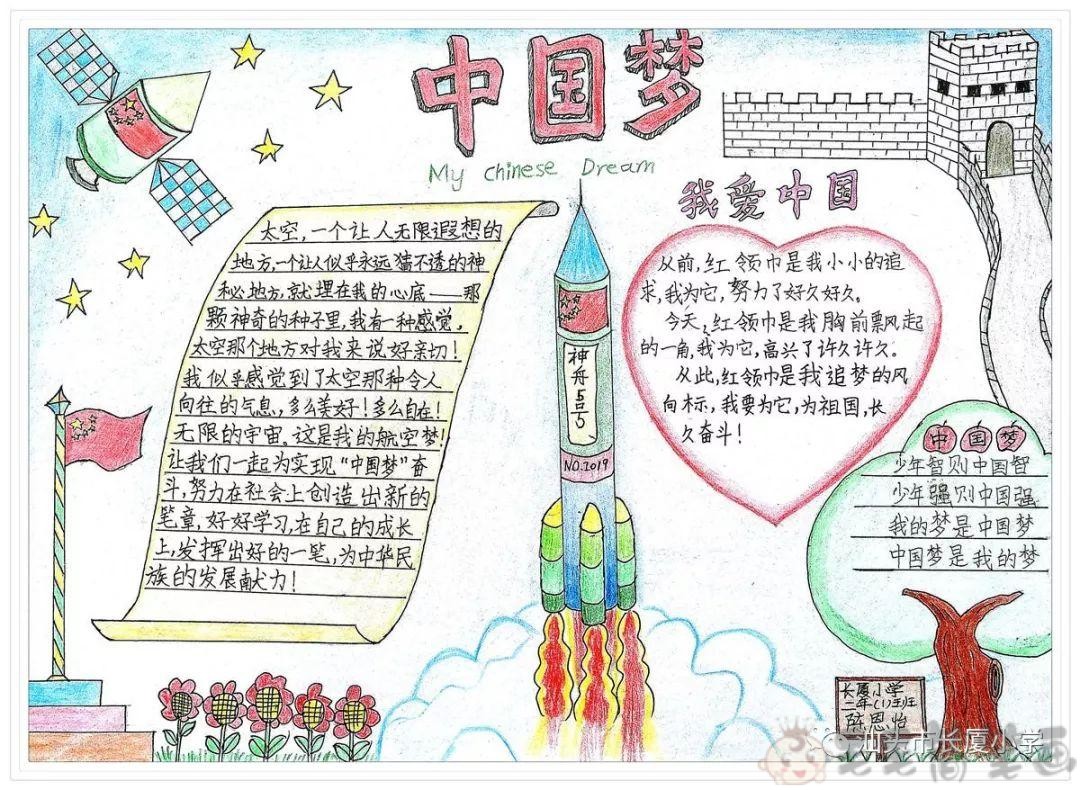 中国梦
My Chinese Dream
太空,一个让人无限遐想的
地方,一个让人似乎永远猜不透的神
秘地方,就埋在我的心底——那
颗神奇的种子里,我有一种感觉,
太空那个地方对我来说好亲切!
我似乎感觉到了太空那种令人
向往的气息,多么美好!多么自在!
无限的宇宙,这是我的航空梦!
让我们一起为实现“中国梦”奋
斗,努力在社会上创造出新的
笔章,好好学习,在自己的成长
上,发挥出好的一笔,为中华民
族的发展献力!
神舟5号
NO.2019
我爱中国
从前,红领巾是我小小的追
求,我为它,努力了好久好久。
今天,红领巾是我胸前飘起
的一角,我为它,高兴了许久许久。
从此,红领巾是我追梦的风
向标,我要为它,为祖国,长
久奋斗!
中国梦
少年智则中国智
少年强则中国强
我的梦是中国梦
中国梦是我的梦
长厦小学
二年(1)班
陈思怡
汕头市长厦小学
老老简笔画